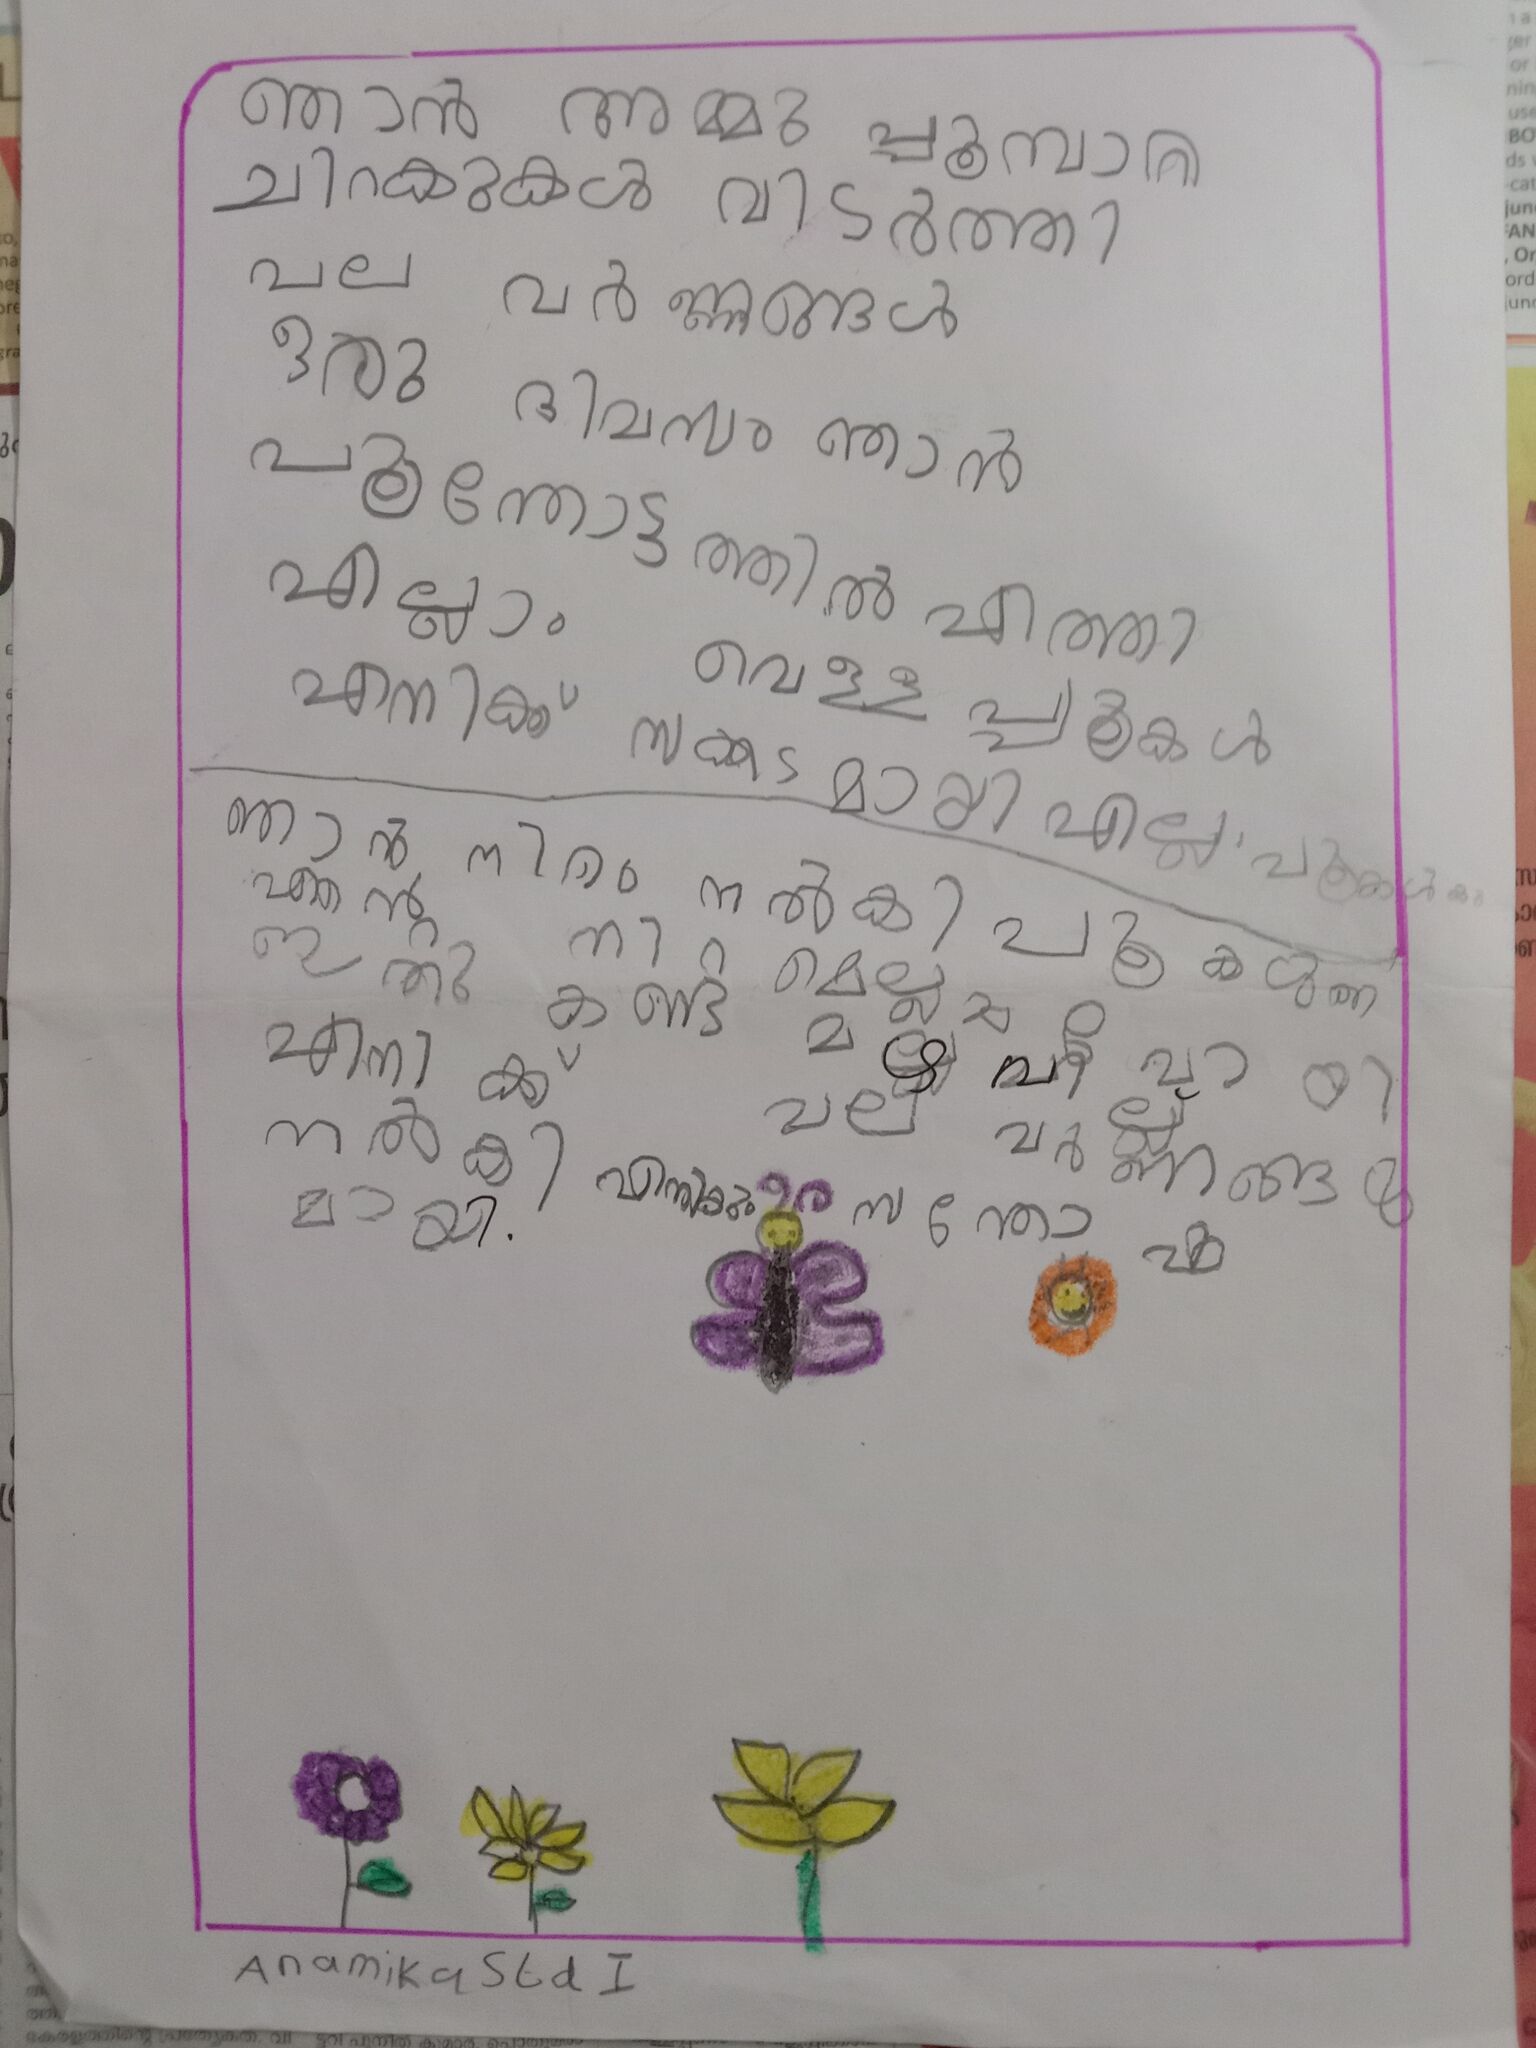 ഞാൻ അമ്മു പൂമ്പാറ്റ
ചിറകുകൾ വിടർത്തി
പല വർണ്ണങ്ങൾ
ഒരു ദിവസം ഞാൻ
പൂന്തോട്ടത്തിൽ എത്തി
എല്ലാം വെള്ള പൂകൾ
എനിക്ക് സങ്കടമായി എല്ലാ പൂകൾകും
ഞാൻ നിറം നൽകി പൂകൾ
എൻ്റെ നിറമെല്ലാം
ഇതു കണ്ട
എനിക്ക് പല വർണ്ണങ്ങൾ
നൽകി എനിക്കും സന്തോഷ
മായി.
Anamika Std I